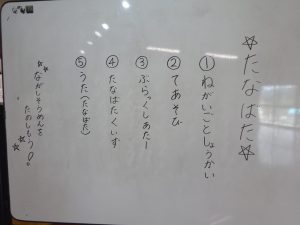 ☆たなばた☆
①ねがいごとしょうかい
②てあそび
③ぶらっくしあたー
④たなばたくいず
⑤うた(たなばた)
ながしそうめんを
たのしもう!